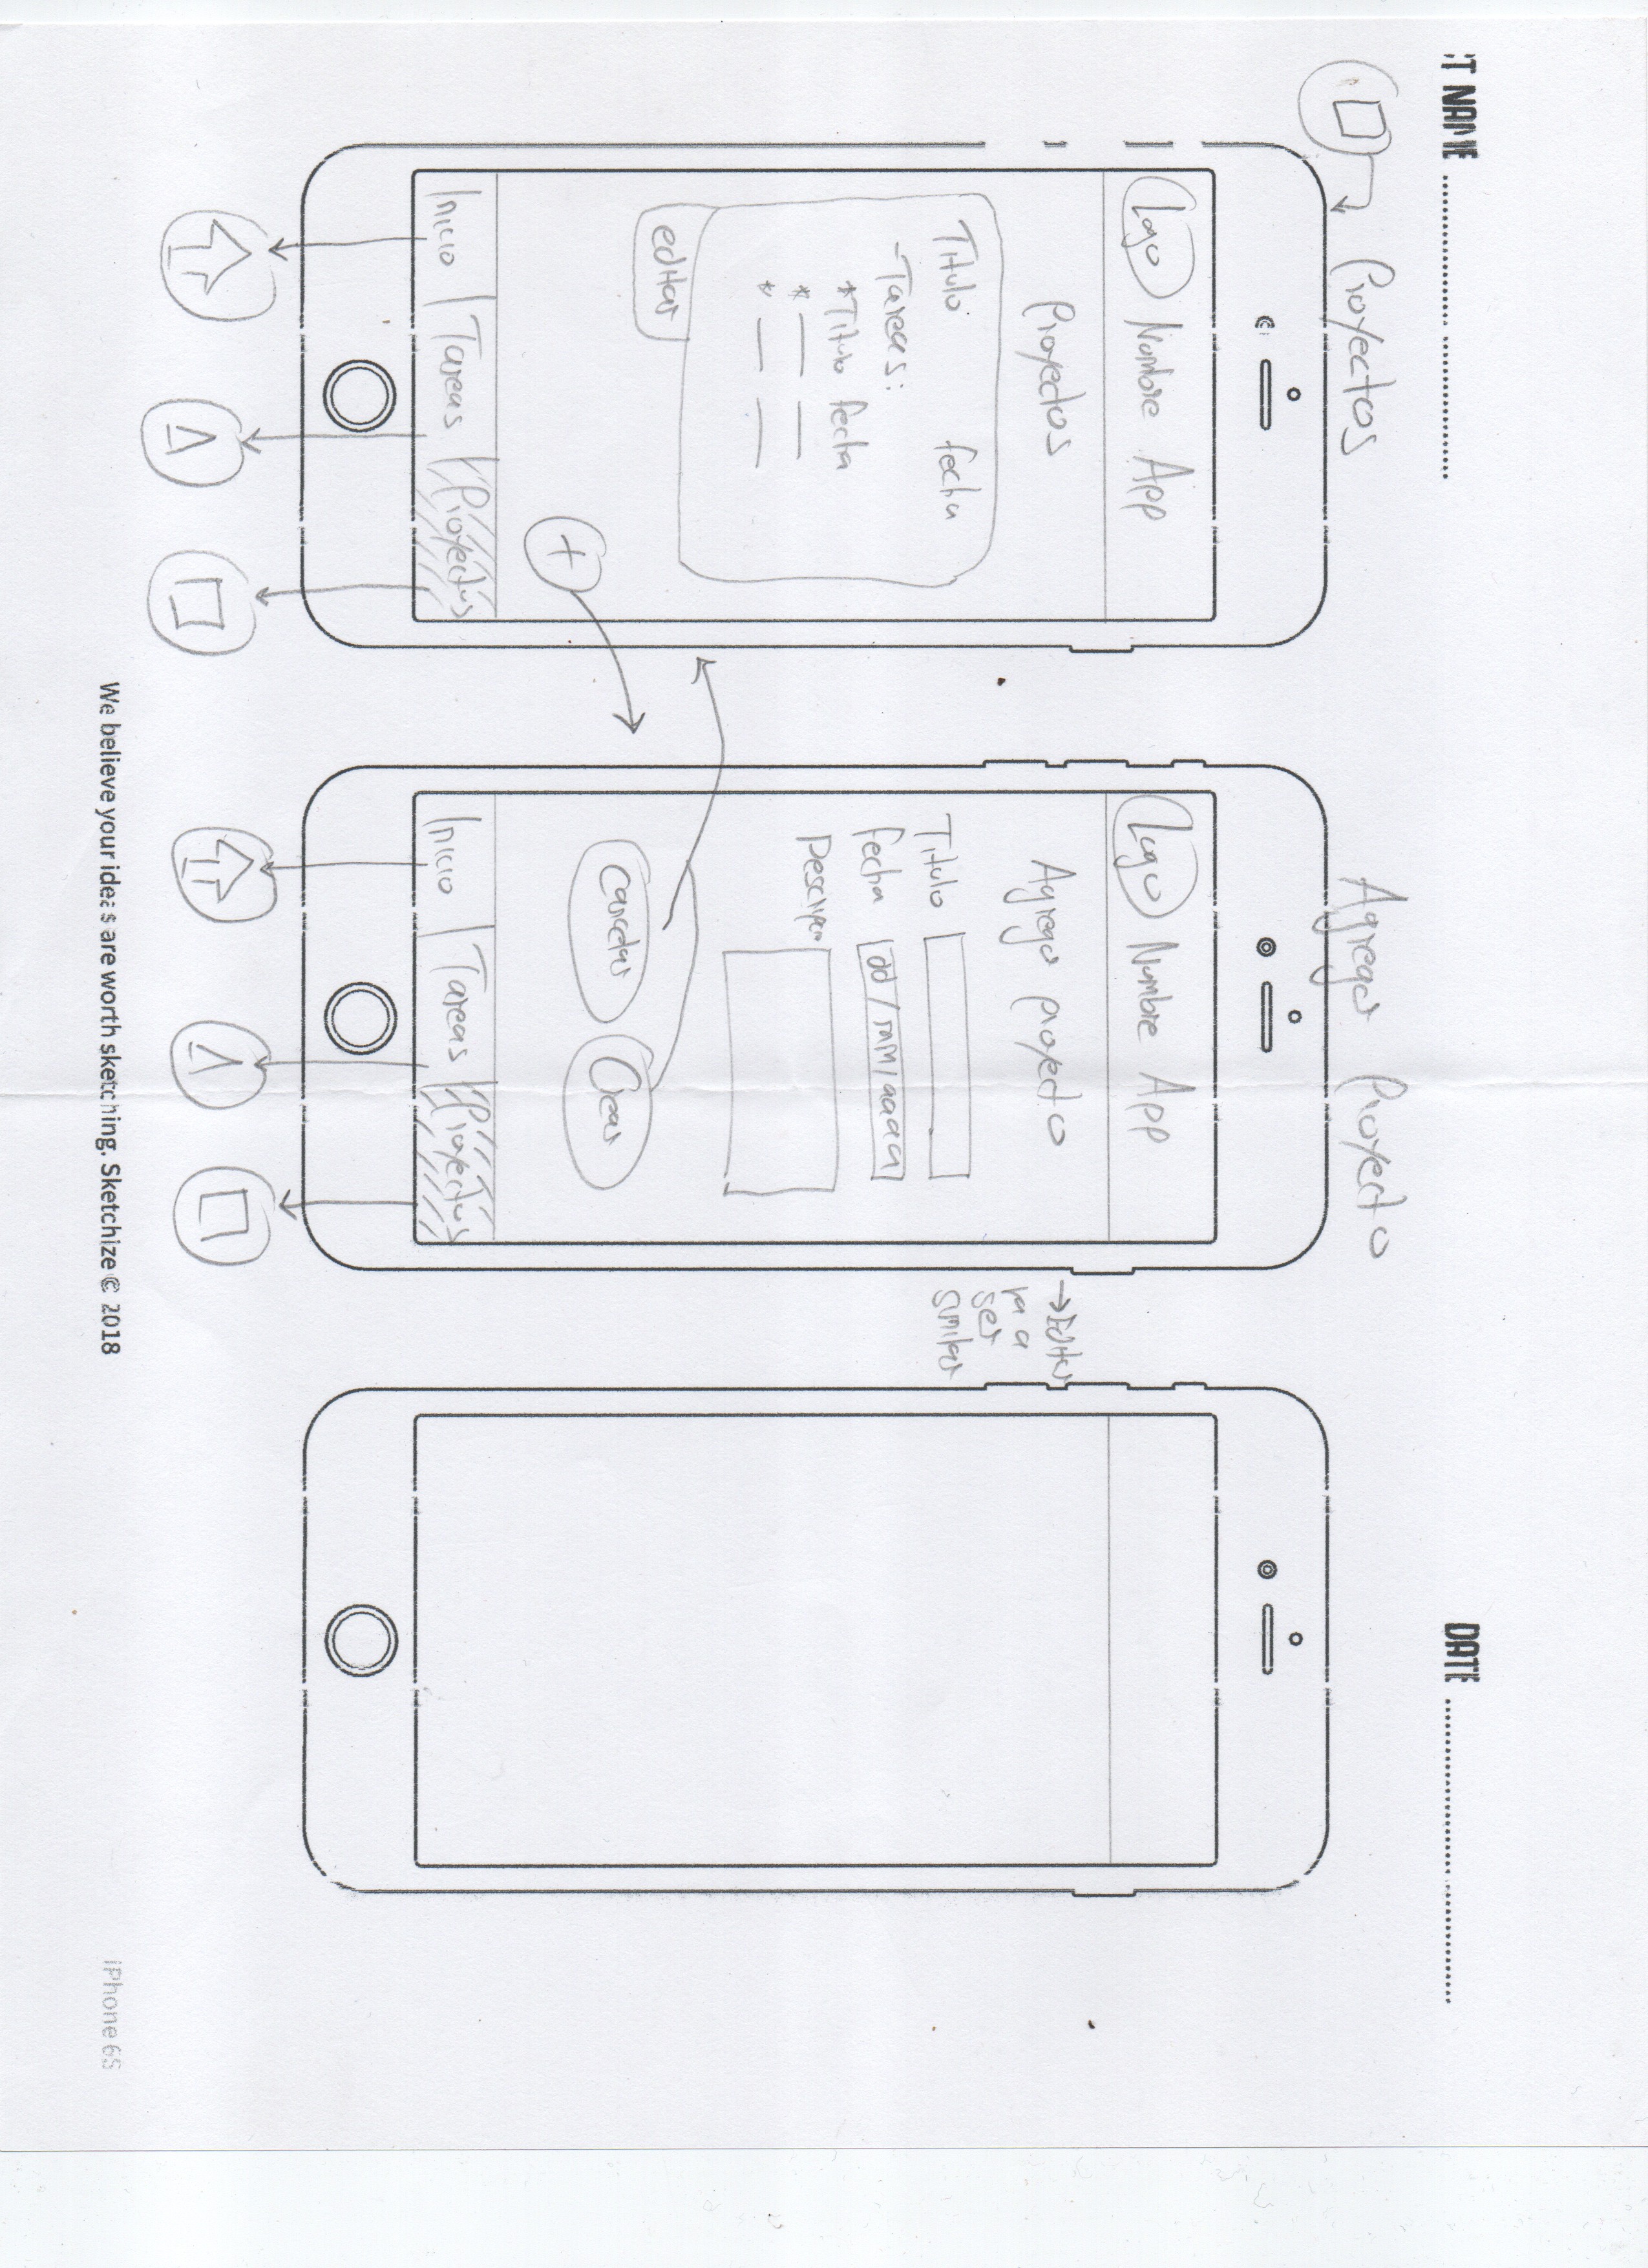 CT NAME
DATE
Proyectos
Agregar Proyecto
Logo Nombre App
Proyectos
Titulo fecha
-Tareas:
*Titulo fecha
*
*
editar
+
Inicio Tareas Proyectos
Logo Nombre App
Agregar proyecto
Titulo
fecha dd/mm/aaaa
Cancelar Crear
Inicio Tareas Proyectos
→Editar
va a
ser
similar
We believe your ideas are worth sketching. Sketchize © 2018
iPhone 6S